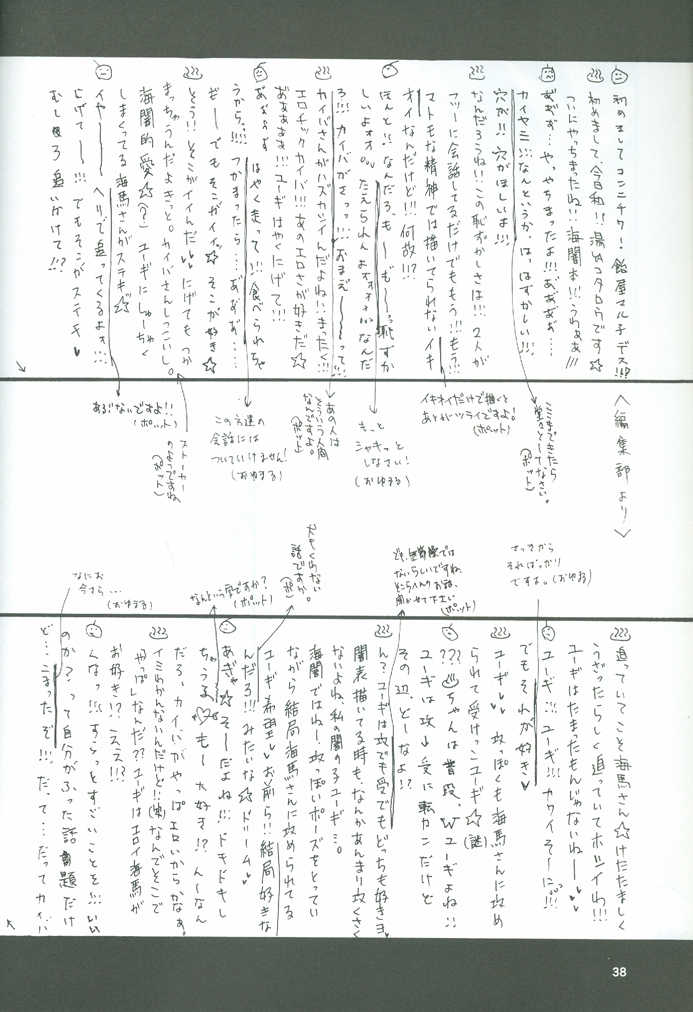 初めましてコンニチワ!飴屋マルチデス!!!?
初めまして、今日和!!湯山コタロウです☆
ついにやっちまったね!!海闇本!!うわぁぁ!!!
あぁぁぁ…やっちまったよ!あぁぁぁ…
カイヤミ!!なんというか、は、はずかしい!!!
穴が!!穴がほしいよ!!!
なんだろうね!!この恥ずかしさは!!!2人が
フツーに会話してるだけでももう!!もう!!!
マトモな精神では描いてられないイキ
オイなんだけど!!!何故!!!?
ほんと!!なんだろ、もーもー恥ずか
しいよォォ。たえられんよォォォなんだ
ろ!!!カイバがさっ!!!おまえーって!!
カイバさんがハズカシイんだよね!!まったく!!!
エロチックカイバ!!!あのエロさが好きだ☆
あぁぁぁぁ!!!ユーギはやくにげて!!!
あぁぁぁはやくまって!!食べられちゃ
うから…!!!つかまったら…あぁぁぁ…
ぎーでもそこがイイッ☆そこが好き☆
とう!!そこがイイんだ♥♥にげてもつか
まっちゃうんだよきっと。カイバさんしつこいし。
海闇的愛☆(?)ユーギにしゅーちゃく
しまくってる海馬さんがステキっ☆
イャーーヘリで追ってくるよォ!!!
にげてーー!!!でもそこがステキ♥
むしろ追いかけて!!?
<編集部より>
ここまできたら
堂々としてなさい。
(ポット)
イキオイだけで描いと
あとがツライですよ!
(ポット)
もっと
シャキっと
しなさい!
(おゆまる)
あの人は
そういう人間
なんですよ。
(ポット)
この方達の
会話には
ついていけません!
(おゆまる)
ストーカー
のようですね
(ポット)
あぶないですよ!!
(ポット)
さっきから
そればっかり
ですよ。(おゆまる)
(ポット)
大きくわない
話ですか。
なんという字ですか?
(ポット)
なにお
今さら…
(おゆまる)
追っていてこと海馬さん☆けたたましく
うざったらしく追っていてホシイわ!!!
ユーギはたまったもんじゃないねー♥♥
ユーギ!!!ユーギ!!!カワイそーに!!!
でもそれが好き♥
ユーギ♥♥攻っぽくも海馬さんに攻め
られて受けっこユーギ☆(謎)
???ちゃんは普段、Wユーギよね!!
ユーギは攻→受に転カンだけど
その辺、どーなよ!?
ん?ユーギは攻でも受でもどっちも好きヨ♥
闇表描いてる時も、なんかあんまり攻くさく
ないよね、私の闇の子ユーギ…。
海闇ではねー攻っぽいポーズをとってい
ながら結局海馬さんに攻められてる
ユーギ希望♥♥お前ら!!結局好きな
んだろ!!!みたいな☆ドリーム♥
あぎゃ☆そーだよね!!!ドキドキし
ちゃうる♥もー大好き!?んーなん
だろ、カイバがやっぱエロいからかなぁ。
イミわかんないんだけど!!(笑)なんでそこで
やっぱしなんだ??ユーギはエロイ海馬が
お好き!?ええ!!?
くなっ!!!すらっとすごいことを!!!いい
のか??って自分がふった話題だけ
ど…こまったぞ!!!だって…だってカイバ
38